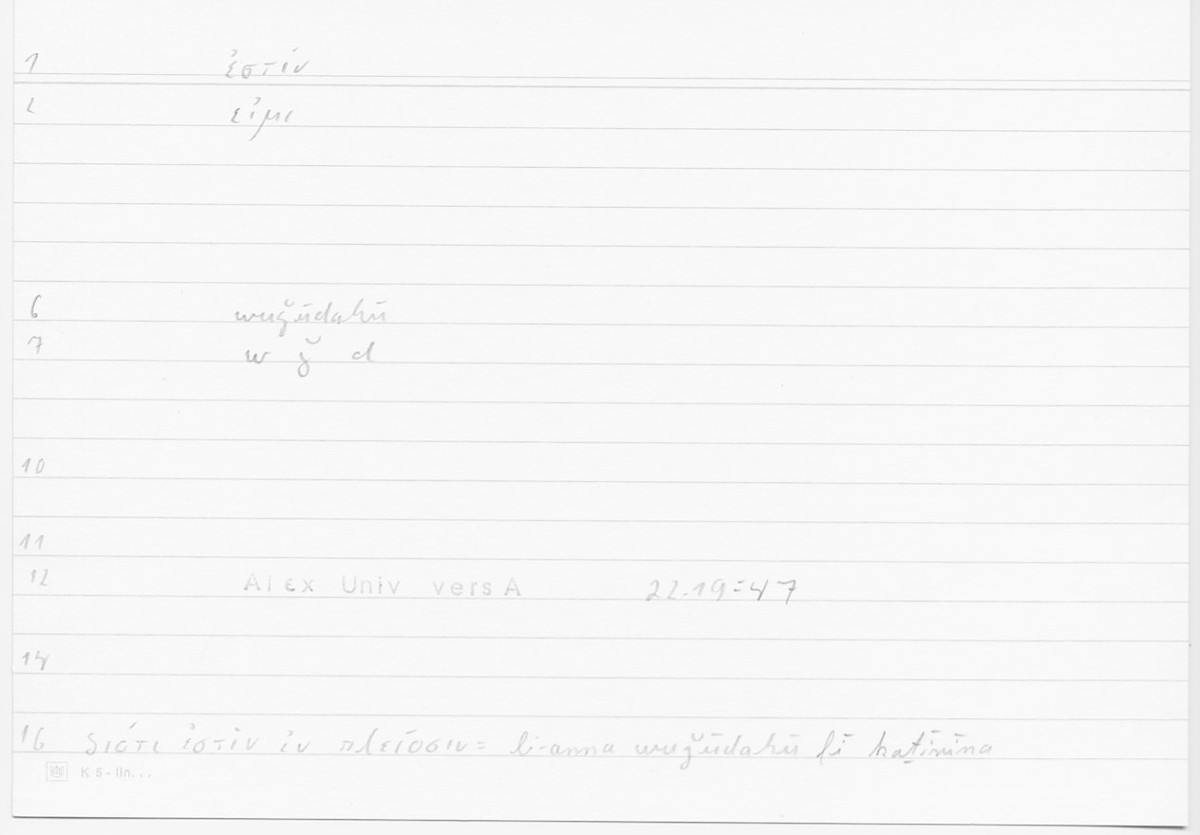 1 ἐστίν
2 εἰμι
6 wuǧūdahū
7 w ǧ d
10
11
12 Alex Univ vers A 22.19=47
14
16 διότι ἐστὶν ἐν πλείοσιν= li-anna wuǧūdahū fī kaṯīrīna
K 5 - lin...